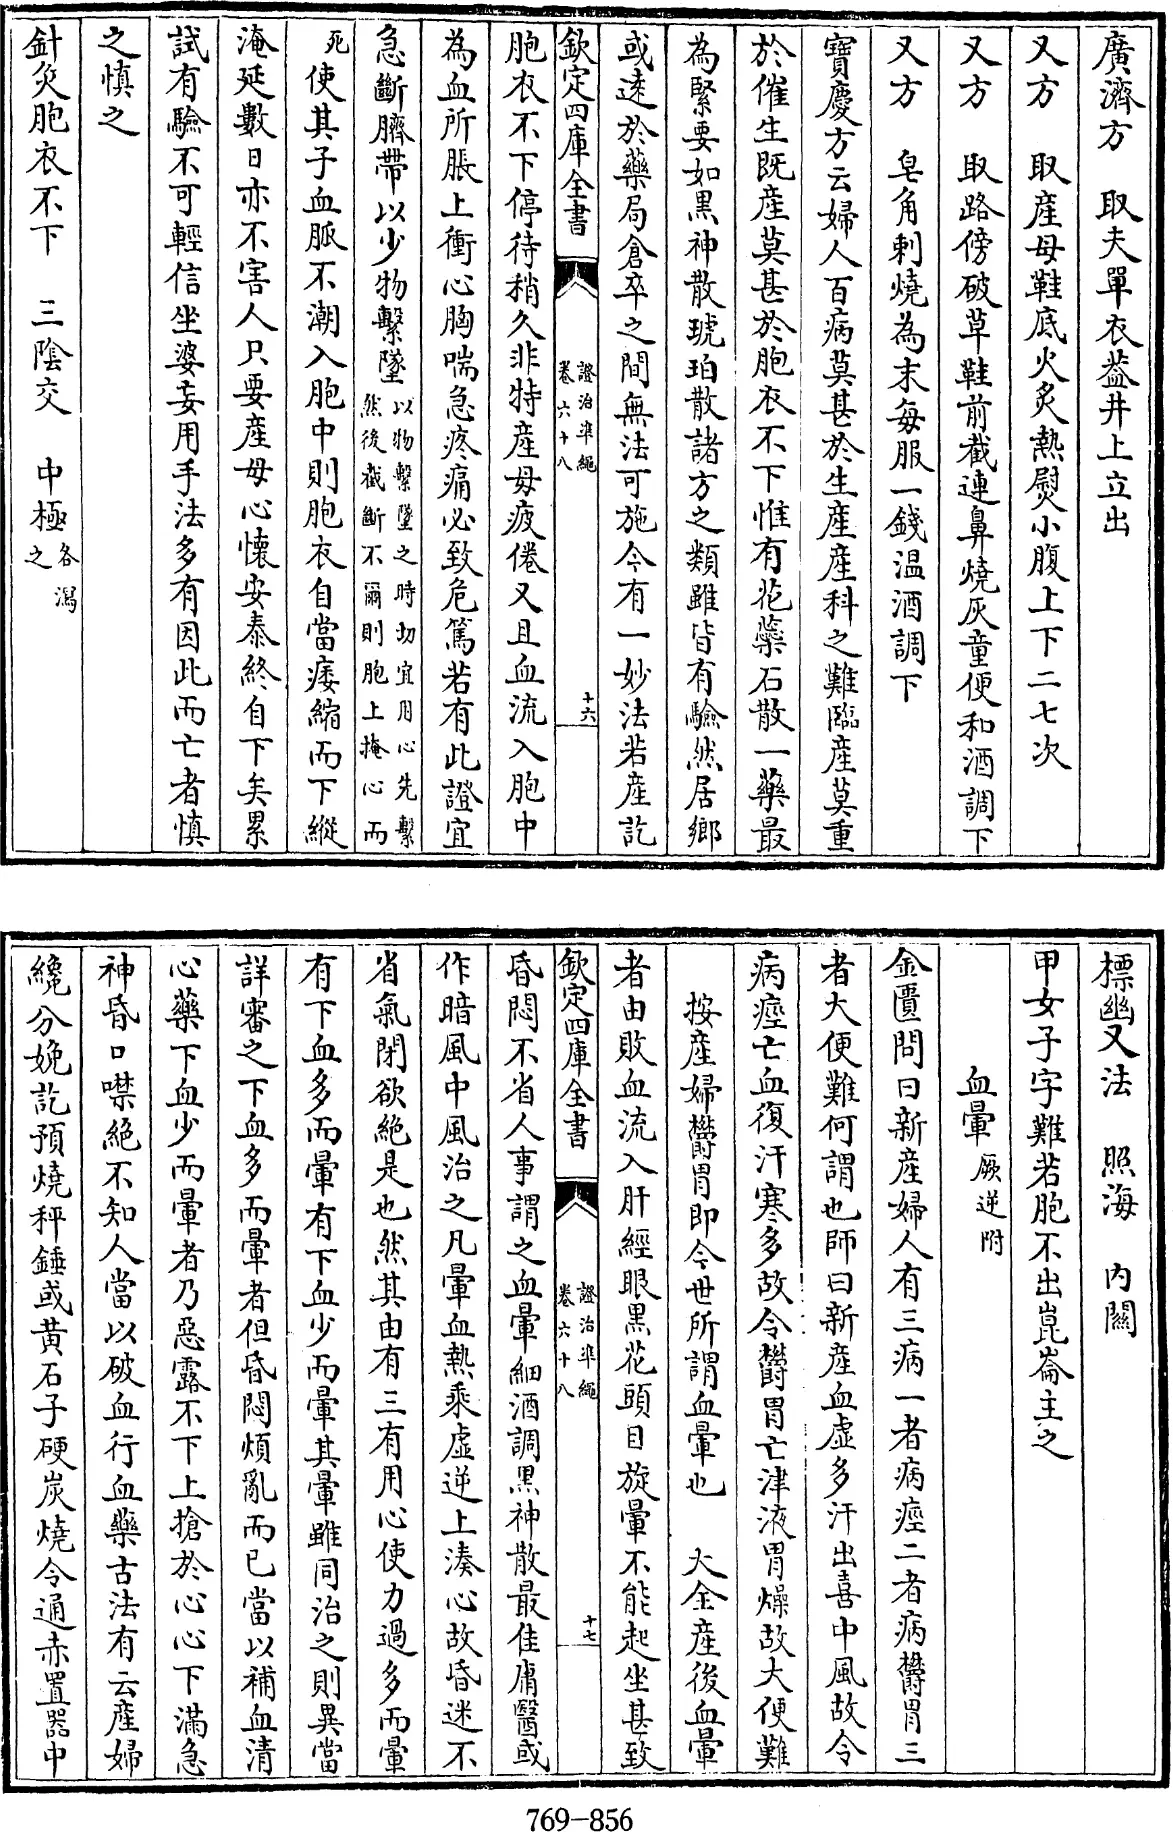 廣濟方　取夫單衣葢井上立出
又方　取産母鞋底火炙熱熨小腹上下二七次
又方　取路傍破草鞋前截連鼻燒灰童便和酒調下
又方　皂角刺燒為末每服一錢温酒調下
寶慶方云婦人百病莫甚於生産産科之難臨産莫重
於催生既産莫甚於胞衣不下惟有花蘂石散一藥最
為緊要如黑神散琥珀散諸方之類雖皆有驗然居鄉
或逺於藥局倉卒之間無法可施今有一妙法若産訖
欽定四庫全書
證治準繩
卷六十八
十六
胞衣不下停待稍久非特産母疲倦又且血流入胞中
為血所脹上衝心胸喘急疼痛必致危篤若有此證宜
急斷臍帶以少物繫墜以物繫墜之時切宜用心先繫
然後截斷不爾則胞上掩心而
死使其子血脈不潮入胞中則胞衣自當痿縮而下縱
淹延數日亦不害人只要産母心懷安泰終自下矣累
試有驗不可輕信坐婆妄用手法多有因此而亡者慎
之慎之
針灸胞衣不下　三陰交　中極各瀉
之
標幽又法　照海　内關
甲女子字難若胞不出崑崙主之
血暈厥逆附
金匱問曰新産婦人有三病一者病痙二者病鬱冒三
者大便難何謂也師曰新産血虚多汗出喜中風故令
病痙亡血復汗寒多故令鬱冒亡津液胃燥故大便難
按産婦鬱冒即今世所謂血暈也　大全産後血暈
者由敗血流入肝經眼黑花頭目旋暈不能起坐甚致
欽定四庫全書
證治準繩
卷六十八
十七
昏悶不省人事謂之血暈細酒調黑神散最佳庸醫或
作暗風中風治之凡暈血熱乘虚逆上湊心故昏迷不
省氣閉欲絶是也然其由有三有用心使力過多而暈
有下血多而暈有下血少而暈其暈雖同治之則異當
詳審之下血多而暈者但昏悶煩亂而已當以補血清
心藥下血少而暈者乃惡露不下上搶於心心下滿急
神昏口噤絶不知人當以破血行血藥古法有云産婦
纔分娩訖預燒秤錘或黄石子硬炭燒令通赤置器中
769-856